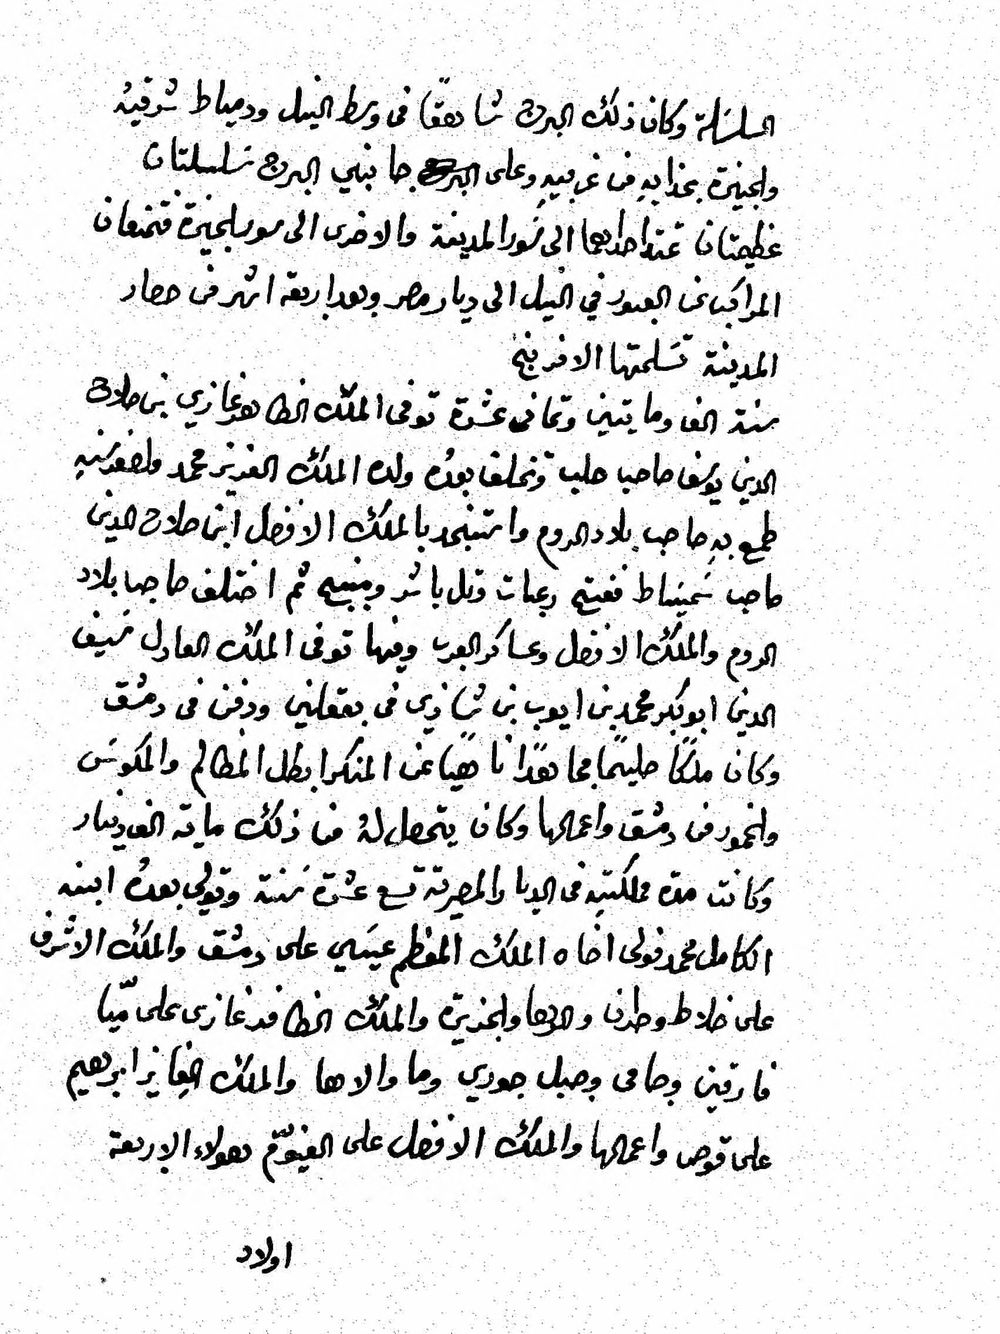 السلسلة وكان ذلك البرج شاهقًا في وسط النيل ودمياط شرقيه
والجيزة بحذايهِ من غربيهِ وعلى جانبي البرج سلسلتان
عظيمتان تمتد احداهما الى سور المدينة والاخرى الى سور الجيزة فتمنعان
المراكب عن العبور في النيل الى ديار مصر وبعد اربعة اشهر من حصار
المدينة تسلمتها الافرنج
سنة الف ومايتين وثماني عشرة توفى الملك الظاهر غازي بن صلاح
الدين يوسف صاحب حلب وتخلف بعدهُ ولده الملك العزيز محمد ولصغر سنهِ
طمع بهِ صاحب بلاد الروم واستنجد بالملك الافضل ابن صلاح الدين
صاحب سميساط ففتح رعبان وتل باشر ومنبج ثم اختلف صاحب بلاد
الروم والملك الافضل وعساكر العرب وفيها توفى الملك العادل سيف
الدين ابو بكر محمد بن ايوب بن شاذي في بعقلين ودفن في دمشق
وكان ملكًا حليمًا مجاهدًا ناهيًا عن المنكر ابطل المظالم والمكوس
والخمور من دمشق واعمالها وكان يتحصل لهُ من ذلك ماية الف دينار
وكانت مدة مملكتهِ في الديار المصرية تسع عشرة سنة وتولى بعدهُ ابنه
الكامل محمد فولى اخاه الملك المعظم عيسي على دمشق والملك الاشرف
على خلاط وحران والرها والجزيرة والملك الظافر غازى على ميّا
فارقين وحاني وجبل جوري وما والاها والملك الفايز ابرهيم
على قوص واعمالها والملك الافضل على الفيوّم هولاء الاربعة
اولاد